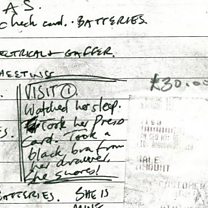 A S.
Check card. · BATTERIES.
ELECTRICAL GAFFER.
MEETING
VISIT ①
Watched her sleep.
Took her press
card. Took a
black bra from
her drawer,
She snored
£30.00
SALE
BATTERIES. SHE IS
MINE